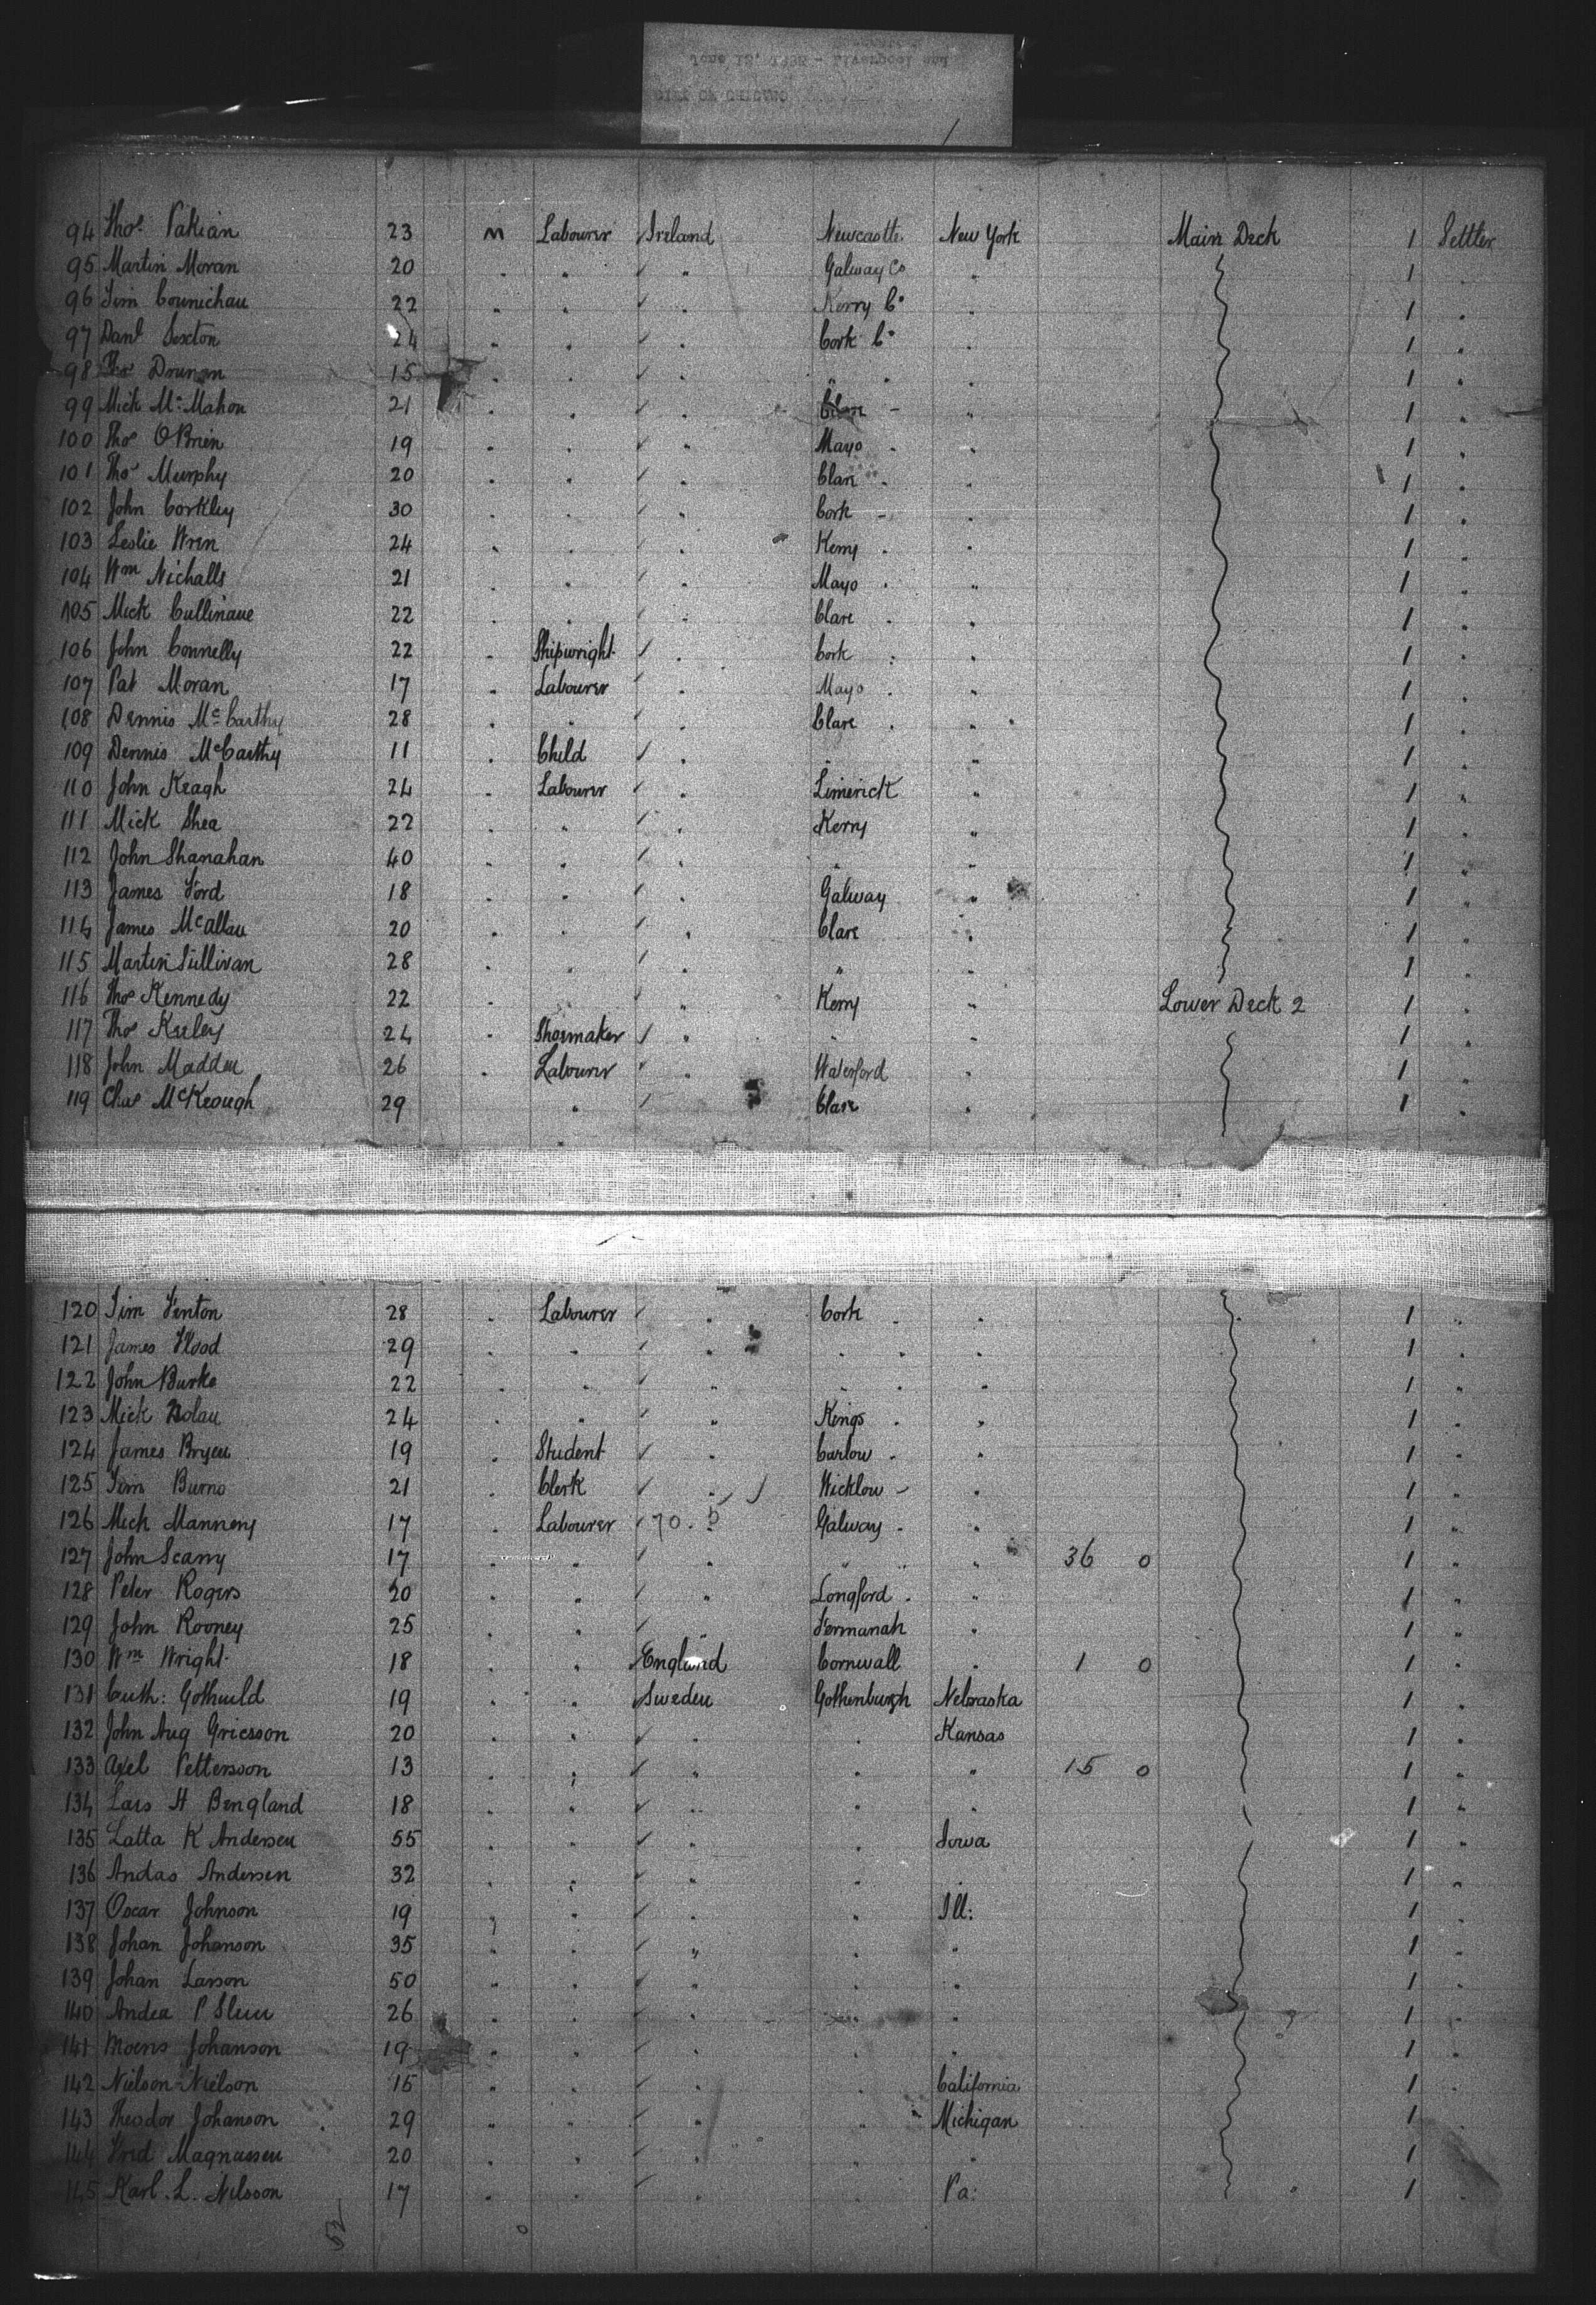 94 Thos Pakian 23 M Labourer Ireland Newcastle New York Main Deck 1 Settler
95 Martin Moran 20 " " " Galway Co " 1 "
96 Tim Counichau 22 " " " Kerry Co " 1 "
97 Danl Sexton 24 " " " Cork Co " 1 "
98 Thos 15 " " " " " " 1 "
99 Mick McMahon 21 " " " Clare " " 1 "
100 Thos OBrien 19 " " " Mayo " " 1 "
101 Thos Murphy 20 " " " Clare " " 1 "
102 John Corkley 30 " " " Cork " " 1 "
103 Leslie Wren 24 " " " Kerry " " 1 "
104 Wm Nichalls 21 " " " Mayo " " 1 "
105 Mick Cullinane 22 " " " Clare " " 1 "
106 John Connelly 22 " Shipwright " Cork " " 1 "
107 Pat Moran 17 " Labourer " Mayo " " 1 "
108 Dennis McCarthy 28 " " " Clare " " 1 "
109 Dennis McCarthy 11 " Child " " " 1 "
110 John Keagh 24 " Labourer " Limerick " 1 "
111 Mick Shea 22 " " " Kerry " 1 "
112 John Shanahan 40 " " " " " 1 "
113 James Ford 18 " " " Galway " 1 "
114 James McAllau 20 " " " Clare " 1 "
115 Martin Sullivan 28 " " " " " 1 "
116 Thos Kennedy 22 " " " Kerry " Lower Deck 2 1 "
117 Thos Keeley 24 " Shoemaker " " " 1 "
118 John Madden 26 " Labourer " Waterford " 1 "
119 Chas McKeough 29 " Clare " 1 "
120 Tim Fenton 28 " Labourer " Cork " " 1 "
121 James Flood 29 " " " " " " 1 "
122 John Burke 22 " " " " " " 1 "
123 Mick Nolan 24 " " " Kings " " 1 "
124 James Bryen 19 " Student " Carlow " " 1 "
125 Tim Burns 21 " Clerk " Wicklow " " 1 "
126 Mick Mannery 17 " Labourer 70. 5 Galway " " 1 "
127 John Scarry 17 " " " " " " 36 0 1 "
128 Peter Rogers 20 " " " Longford " " 1 "
129 John Rooney 25 " " " Fermanah " 1 "
130 Wm Wright 18 " " England Cornwall " 1 0 1 "
131 Cuth: Gothuild 19 " " Sweden Gothenburgh Nebraska 1 "
132 John Aug Gricsson 20 " " " " Kansas 1 "
133 Axel Pettersson 13 " " " " " 15 0 1 "
134 Lars H Bengland 18 " " " " " 1 "
135 Latta K Andersen 55 " " " " Iowa 1 "
136 Andas Andersen 32 " " " " " 1 "
137 Oscar Johnson 19 " " " " Ill: 1 "
138 Johan Johanson 35 " " " " " 1 "
139 Johan Larson 50 " " " " " 1 "
140 Andea P 26 " " " " " 1 "
141 Moens Johanson 19 " " " " " 1 "
142 Nielson Nielson 15 " " " " California 1 "
143 Theodor Johanson 29 " " " " Michigan 1 "
144 Fred Magnassen 20 " " " " " 1 "
145 Karl. L. Nilsson 17 " " " " Pa: 1 "
52